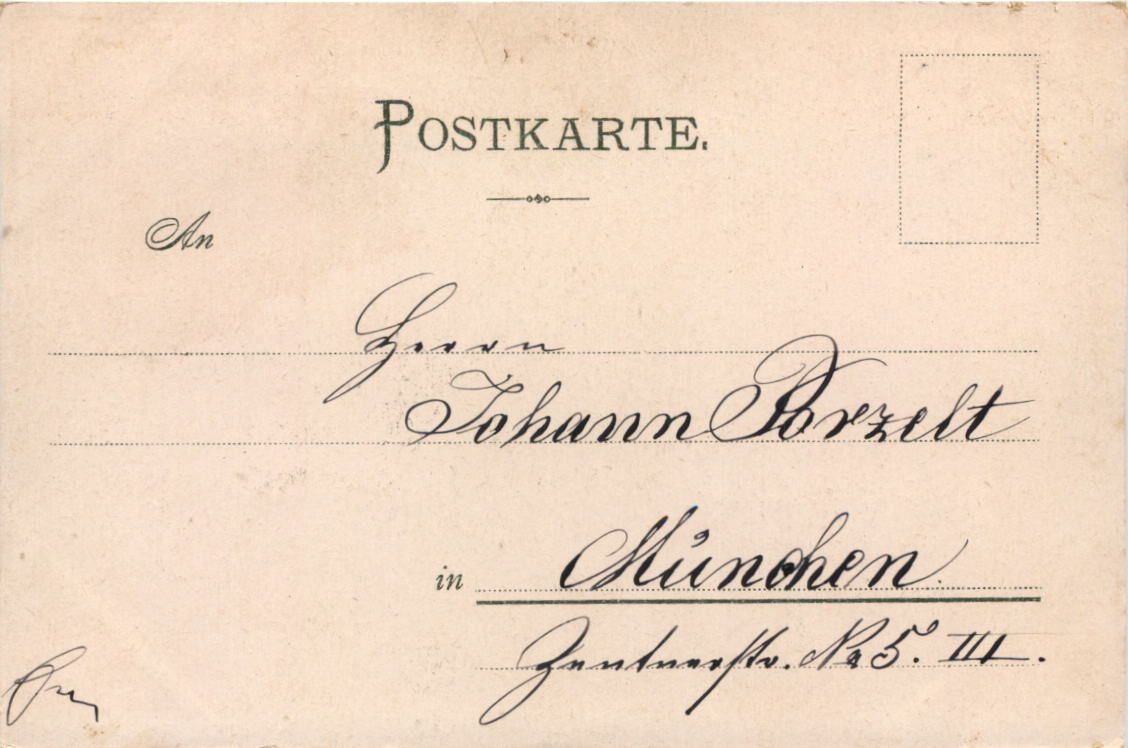 POSTKARTE.
An
Herrn
Johann Porzelt
in München
Zentnerstr. No 5. III.